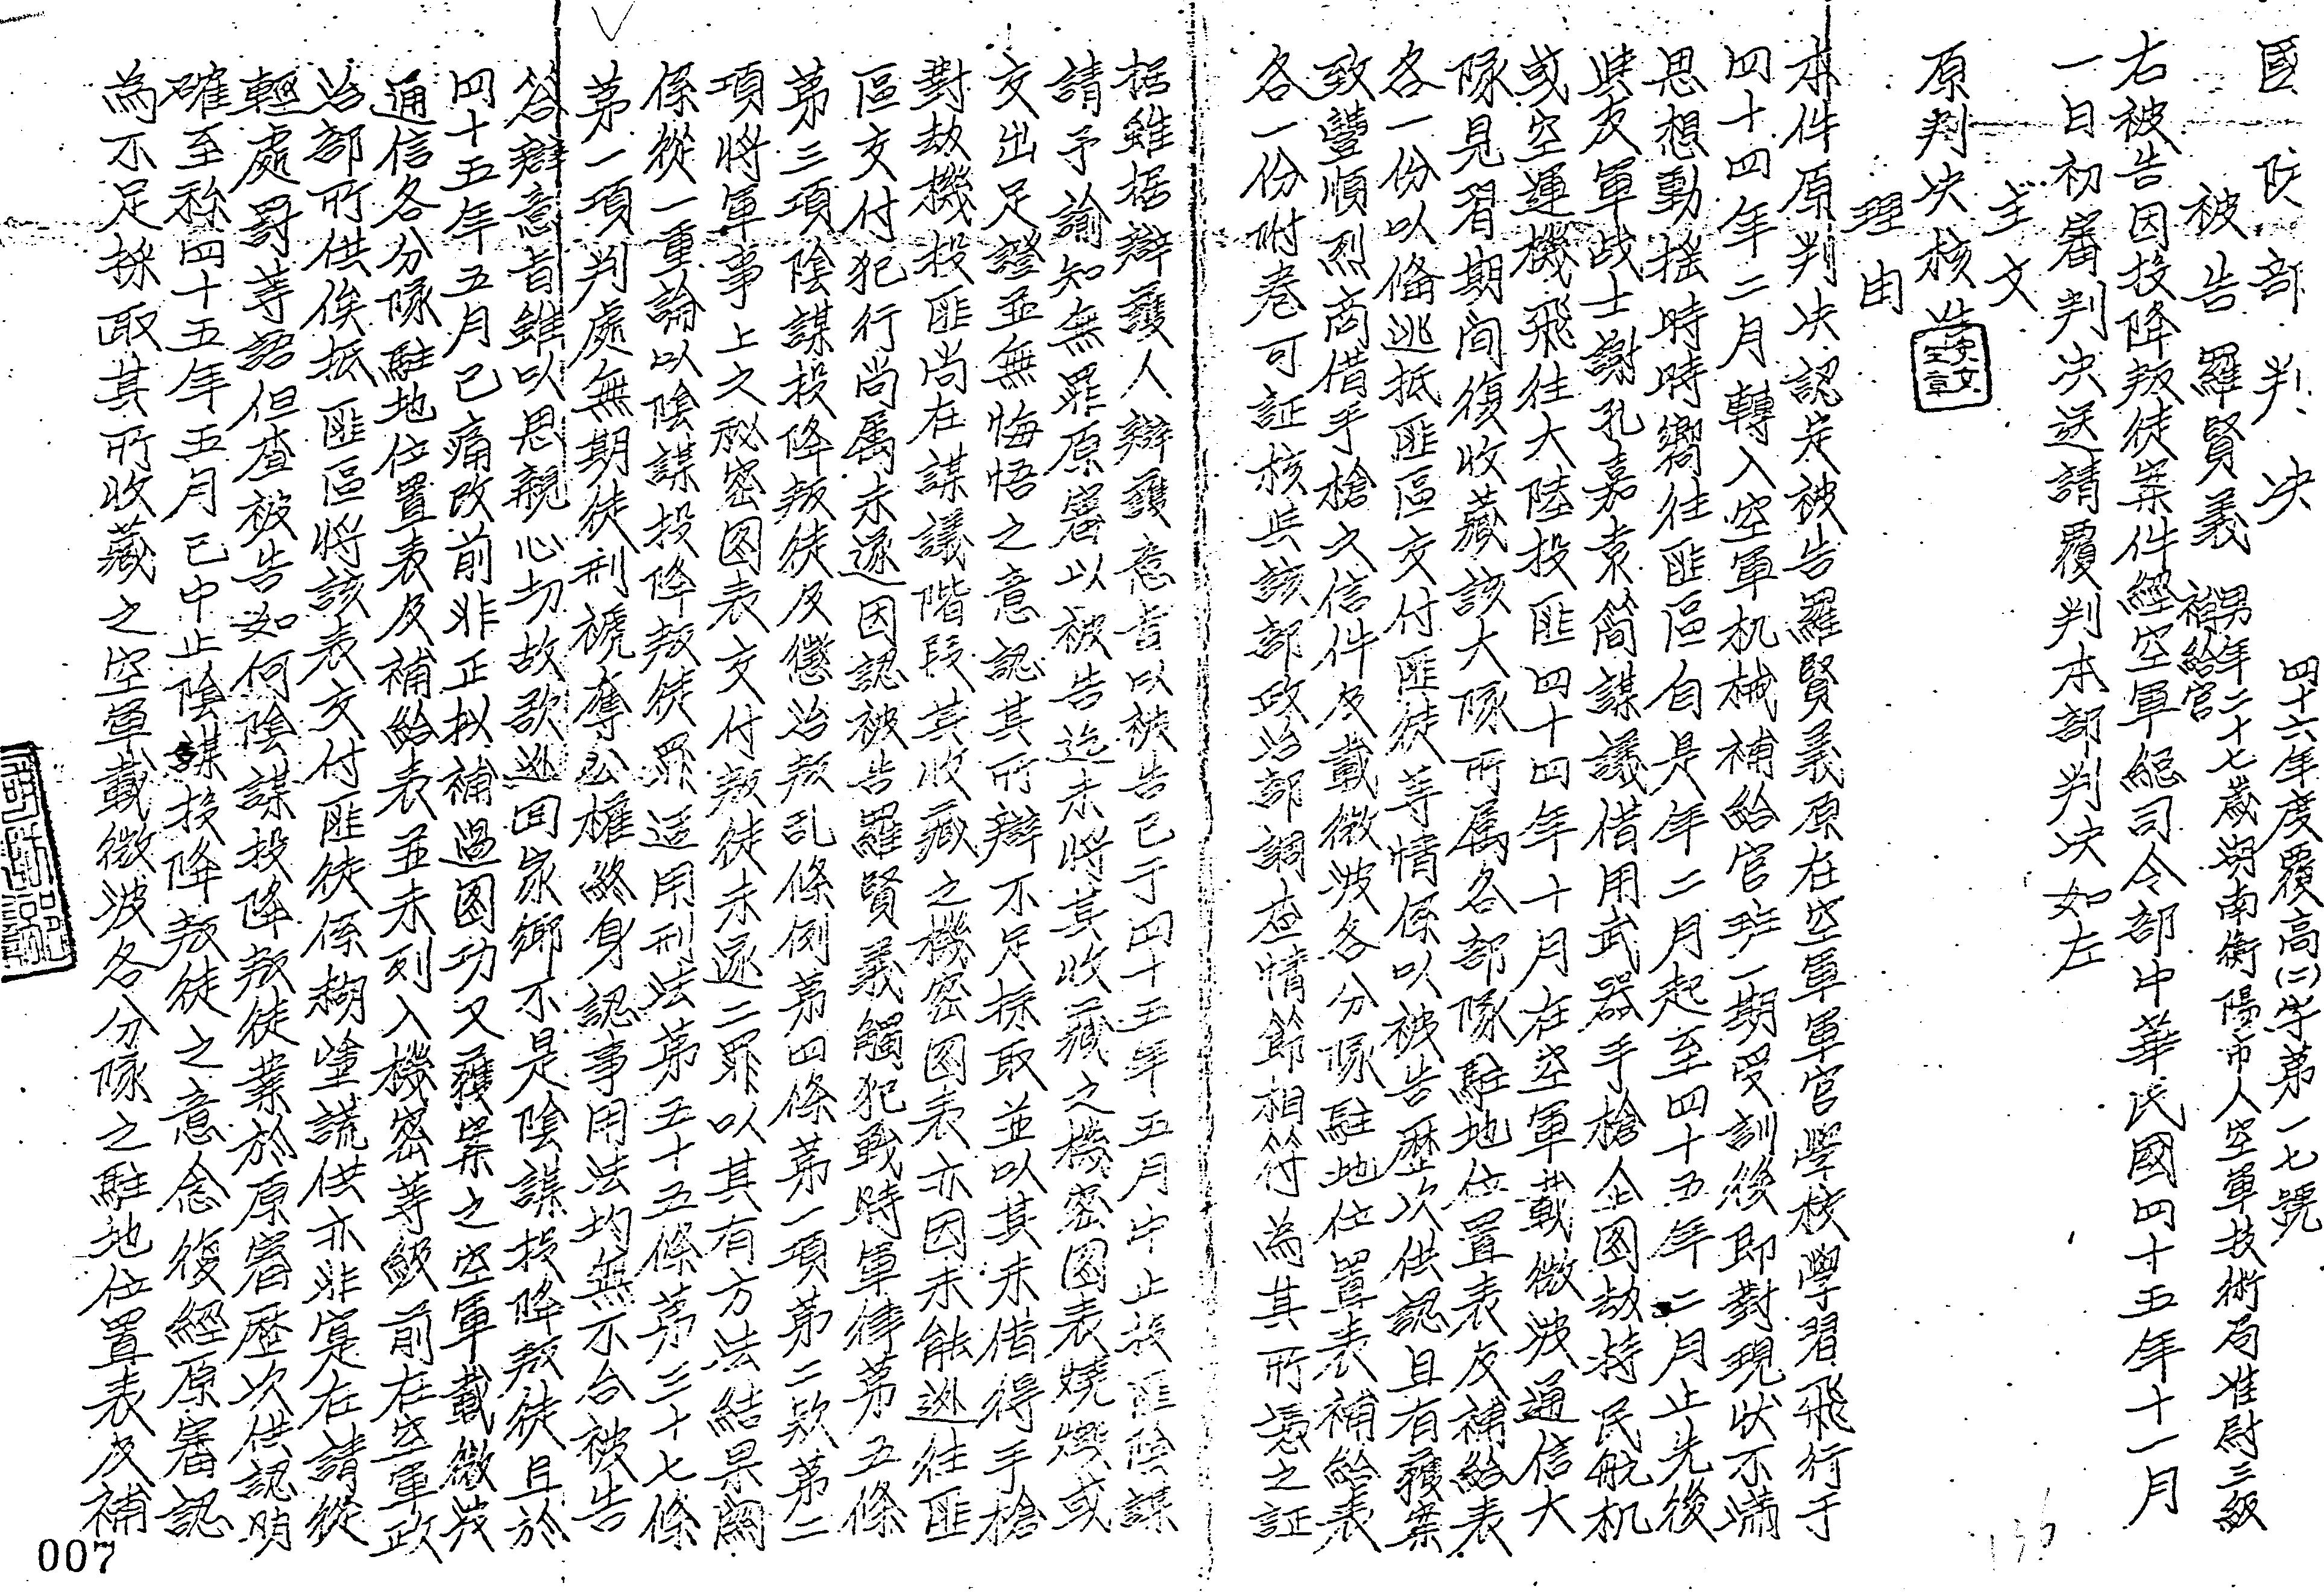 國防部判決
四十六年度覆高(二)字第一七號
被告羅賢義 男年二十七歲湖南衡陽市人空軍技術局准尉三級
補給官
右被告因投降叛徒案件經空軍總司令部中華民國四十五年十一月
一日初審判決送請覆判本部判決如左
主文
原判決核准
理由
本件原判決認定被告羅賢義原在空軍軍官學校學習飛行于
四十四年二月轉入空軍机械補給官班一期受訓後即對現狀不滿
思想動搖時時嚮往匪區自是年二月起至四十五年二月止先後
與友軍战士謝孔嘉袁簡謀議借用武器手槍企図劫持民航机
或空運機飛往大陸投匪四十四年十月在空軍載微波通信大
隊見習期间復收藏該大隊所属各部隊駐地位置表及補給表
各一份以備逃抵匪區交付匪徒等情係以被告歷次供認且有獲案
致豐順烈商借手槍之信件及載微波各分隊駐地位置表補給表
各一份附卷可証核與該部政治部調查情節相符為其所憑之証
据雖据辯護人辯護意旨以被告已于四十五年五月中止投匪陰謀
請予諭知無罪原審以被告迄未將其收藏之機密図表燒燬或
交出足證並無悔悟之意認其所辯不足採取並以其未借得手槍
對劫機投匪尚在謀議階段其收藏之機密図表亦因未能逃往匪
區交付犯行尚属未遂因認被告羅賢義觸犯戰時軍律第五條
第三項陰謀投降叛徒及懲治叛乱條例第四條第一項第二款第二
項將軍事上之秘密図表交付叛徒未遂二罪以其有方法結果関
係從一重論以陰謀投降叛徒罪适用刑法第五十五條第三十七條
第一項判處無期徒刑褫奪公權終身認事用法均無不合被告
答辯意旨雖以思親心切故欲逃回家鄉不是陰謀投降叛徒且於
四十五年五月已痛改前非正拟補過図功又獲案之空軍載微波
通信各分隊駐地位置表及補給表並未列入機密等級前在空軍政
治部所供俟抵匪區將該表交付匪徒係糊塗謊供亦非寔在請從
輕處罰等語但查被告如何陰謀投降叛徒業於原審歷次供認明
確至称四十五年五月已中止陰謀投降叛徒之意念復經原審認
為不足採取其所收藏之空軍載微波各分隊之駐地位置表及補
007